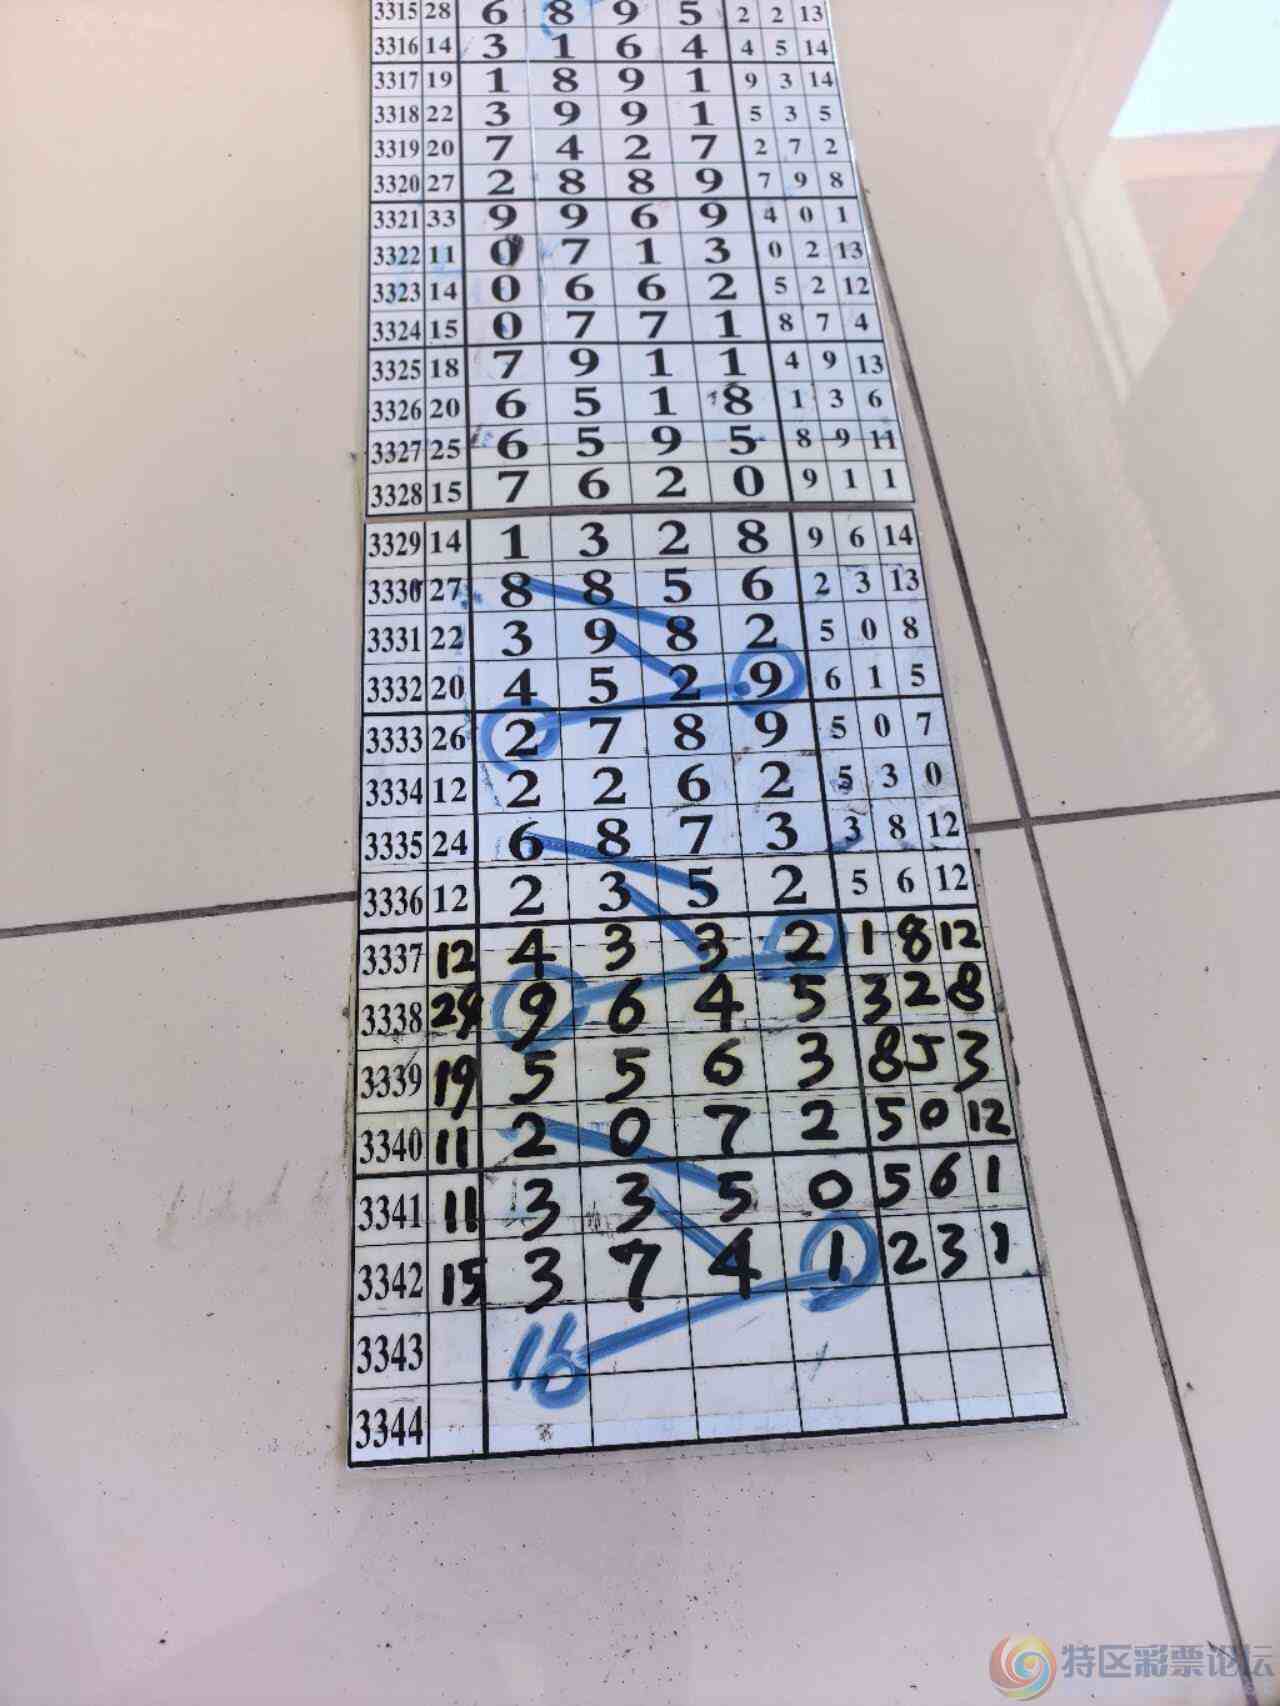 3315 28 6 8 9 5 2 2 13
3316 14 3 1 6 4 4 5 14
3317 19 1 8 9 1 9 3 14
3318 22 3 9 9 1 5 3 5
3319 20 7 4 2 7 2 7 2
3320 27 2 8 8 9 7 9 8
3321 33 9 9 6 9 4 0 1
3322 11 0 7 1 3 0 2 13
3323 14 0 6 6 2 5 2 12
3324 15 0 7 7 1 8 7 4
3325 18 7 9 1 1 4 9 13
3326 20 6 5 1 8 1 3 6
3327 25 6 5 9 5 8 9 11
3328 15 7 6 2 0 9 1 1
3329 14 1 3 2 8 9 6 14
3330 27 8 8 5 6 2 3 13
3331 22 3 9 8 2 5 0 8
3332 20 4 5 2 9 6 1 5
3333 26 2 7 8 9 5 0 7
3334 12 2 2 6 2 5 3 0
3335 24 6 8 7 3 3 8 12
3336 12 2 3 5 2 5 6 12
3337 12 4 3 3 2 1 8 12
3338 24 9 6 4 5 3 2 8
3339 19 5 5 6 3 8 5 3
3340 11 2 0 7 2 5 0 12
3341 11 3 3 5 0 5 6 1
3342 15 3 7 4 1 2 3 1
3343 16
3344
特区彩票论坛